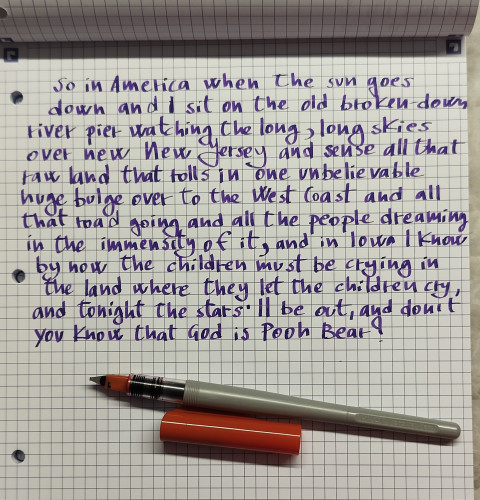 so in America when the sun goes
down and I sit on the old broken-down
river pier watching the long, long skies
over new New Jersey and sense all that
raw land that rolls in one unbelievable
huge bulge over to the West Coast and all
that road going and all the people dreaming
in the immensity of it, and in Iowa I know
by now the children must be crying in
the land where they let the children cry,
and tonight the stars'll be out, and don't
you know that God is Pooh Bear?